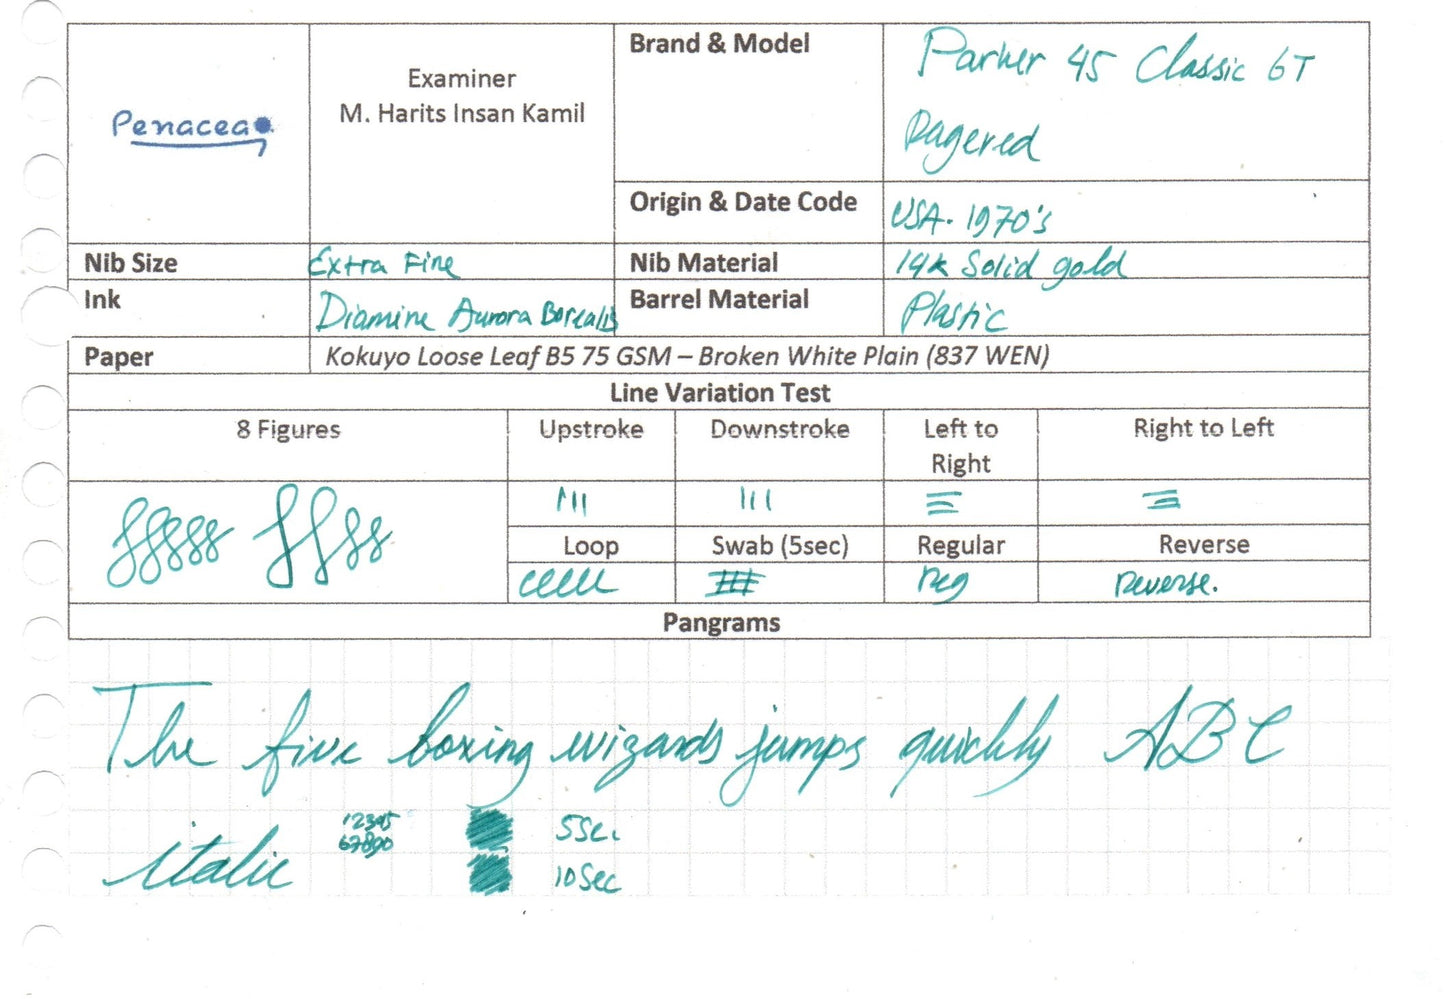 Penacea
Examiner
M. Harits Insan Kamil
Brand & Model
Parker 45 Classic GT
Dagered
Origin & Date Code
USA. 1970's
Nib Size
Extra Fine
Nib Material
14k Solid gold
Ink
Diamine Aurora Borealis
Barrel Material
Plastic
Paper
Kokuyo Loose Leaf B5 75 GSM – Broken White Plain (837 WEN)
Line Variation Test
8 Figures
Upstroke
Downstroke
Left to
Right
Right to Left
Loop
Swab (5sec)
Regular
Reverse
reg
reverse.
Pangrams
The five boxing wizards jumps quickly ABC
italic
12345
67890
5sec.
10sec